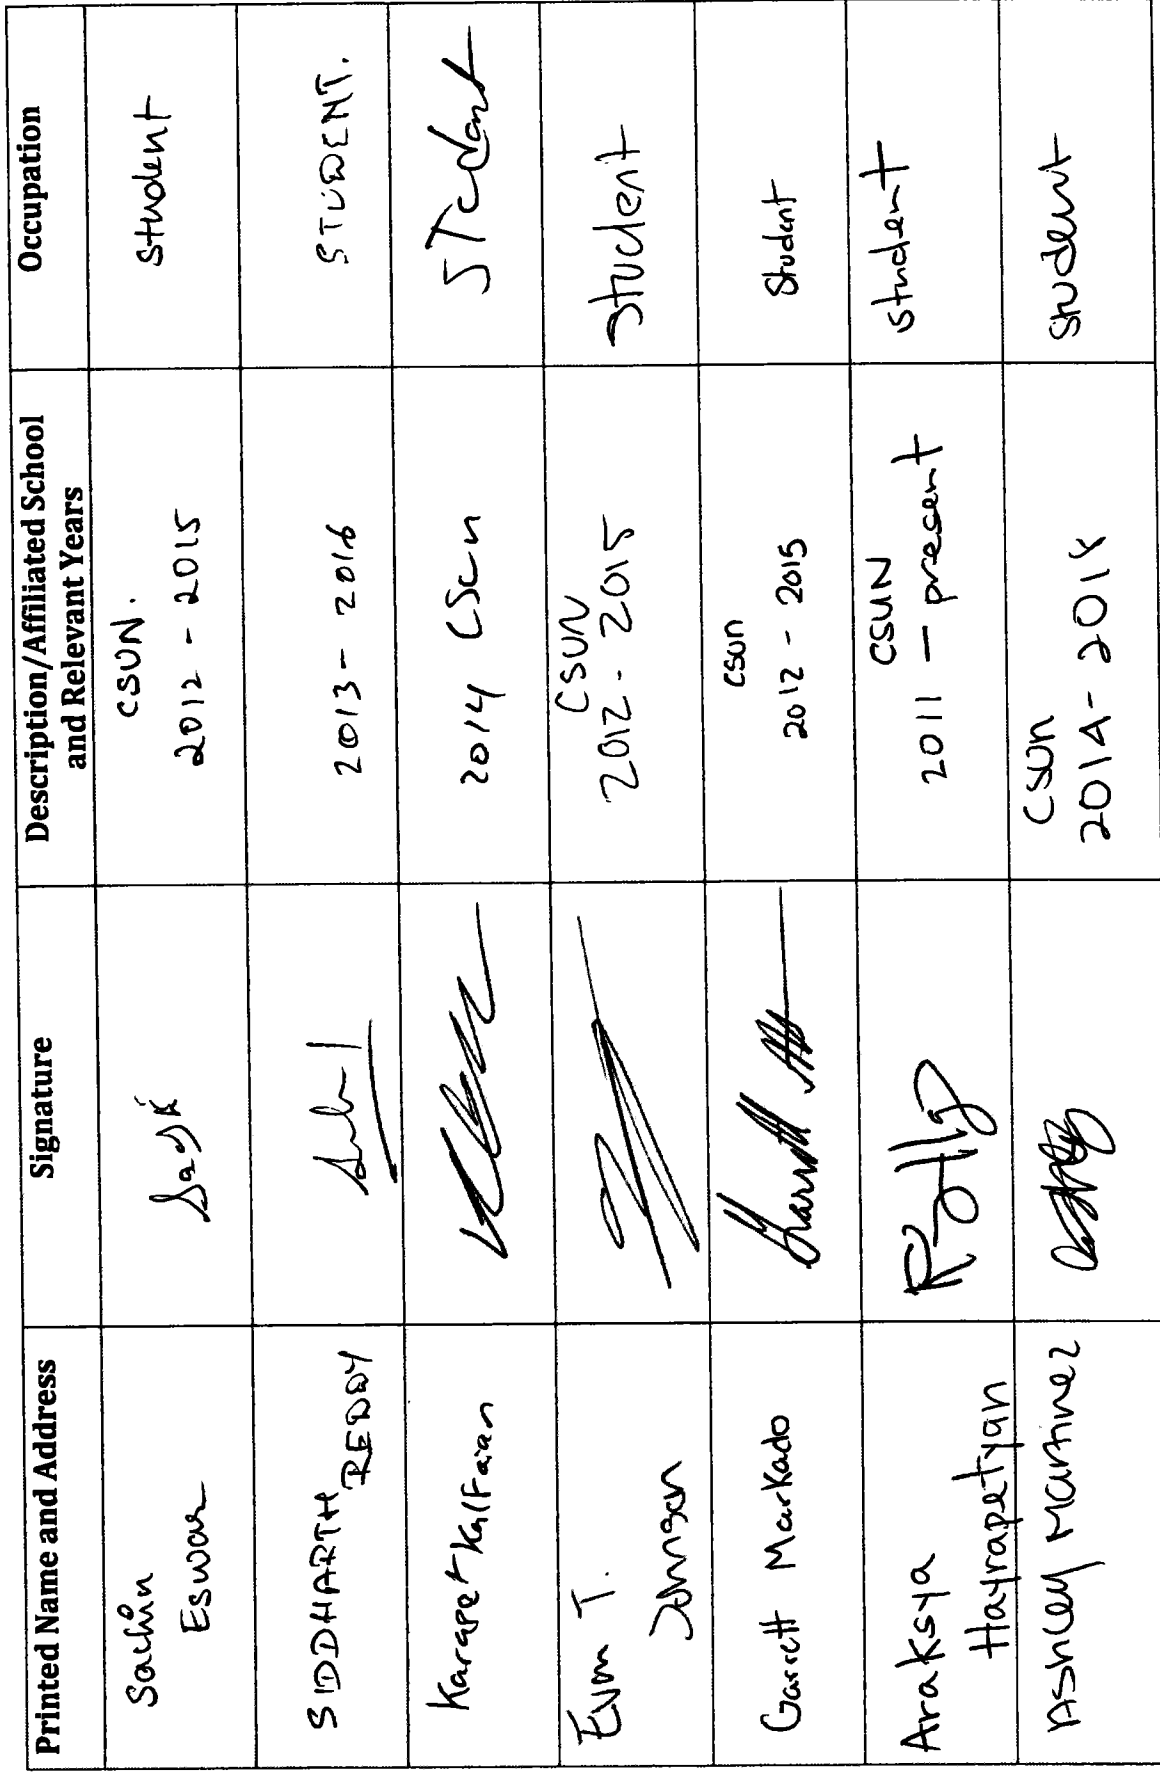 Printed Name and Address Signature Description/Affiliated School and Relevant Years Occupation
Sachin
Eswar
CSUN.
2012 - 2015
student
SIDDHARTH
REDDY
2013 - 2016
STUDENT.
Karapet Kalfaian
2014 CSun
STudent
Evan T.
Johnson
CSUN
2012 - 2015
Student
Garrett Markado
CSUn
2012 - 2015
Student
Araksya
Hayrapetyan
CSUN
2011 - present
student
Ashley Martinez
CSUn
2014 - 2018
Student